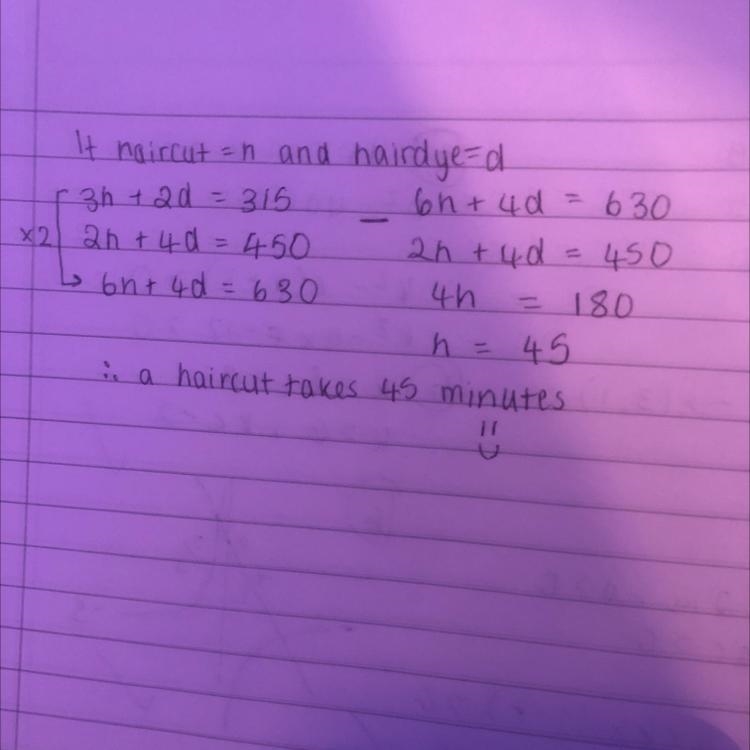 If haircut = h and hairdye = d
3h + 2d = 315
×2
2h + 4d = 450
6h + 4d = 630
− 6h + 4d = 630
2h + 4d = 450
4h = 180
h = 45
∴ a haircut takes 45 minutes